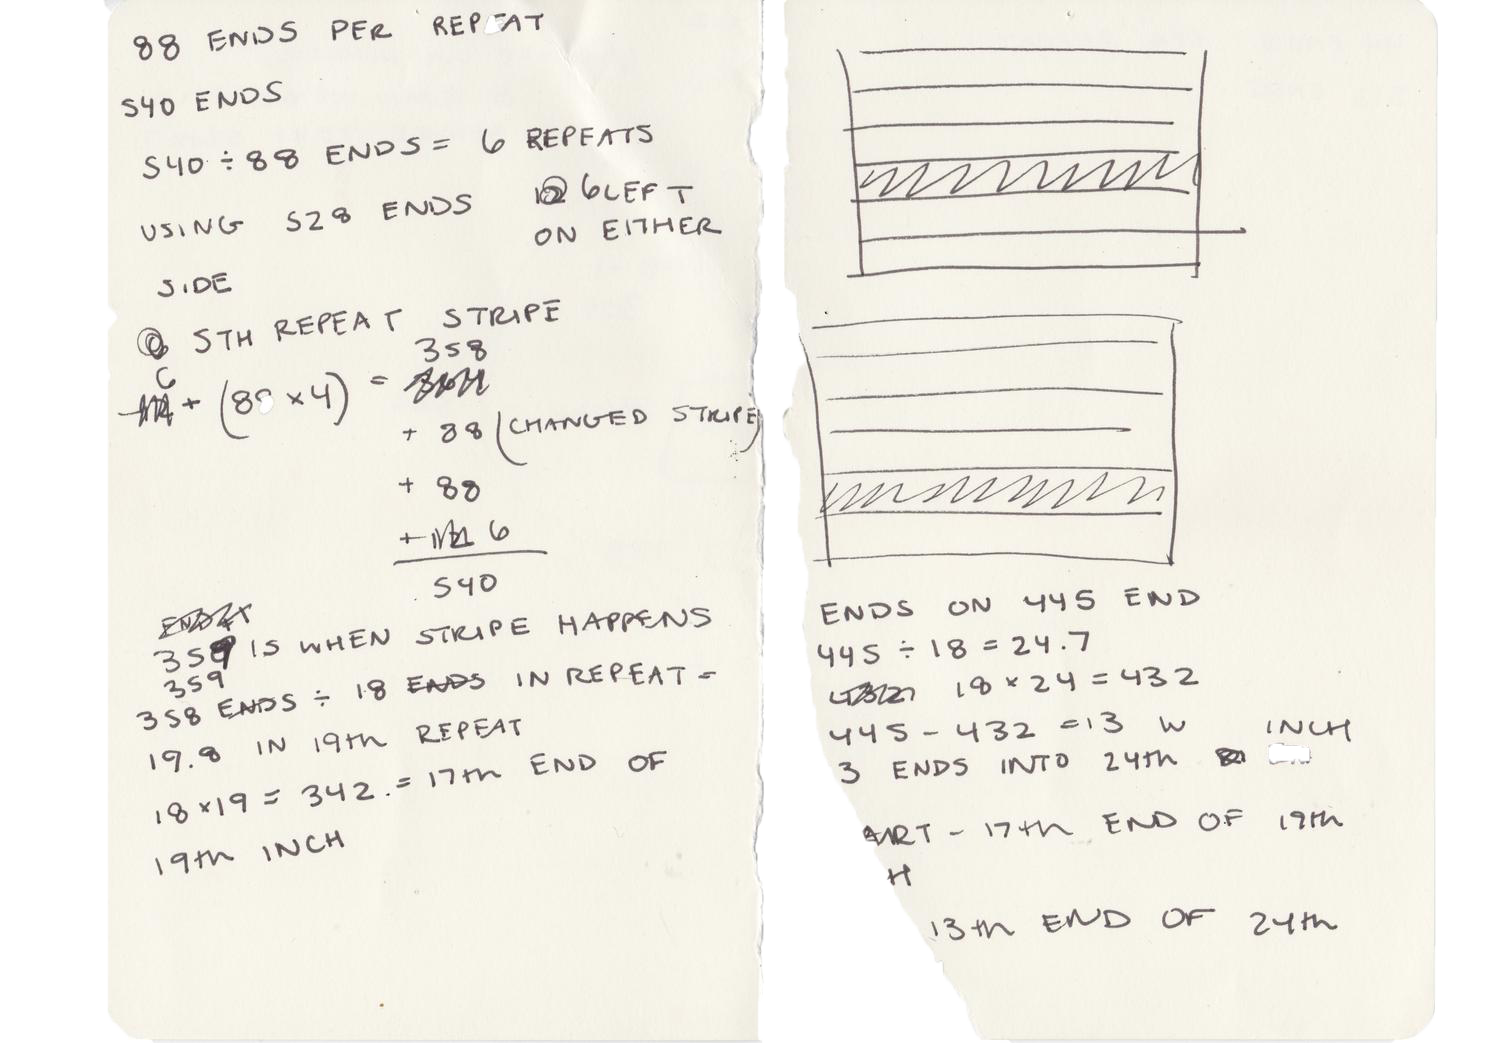 88 ENDS PER REPEAT
540 ENDS
540 ÷ 88 ENDS = 6 REPEATS
USING 528 ENDS 6 LEFT
ON EITHER
SIDE
5TH REPEAT STRIPE
358
6
+ (88 × 4) =
+ 88 (CHANGED STRIPE)
+ 88
+ 6
540
359 IS WHEN STRIPE HAPPENS
359
358 ENDS ÷ 18 ENDS IN REPEAT =
19.8 IN 19th REPEAT
18 × 19 = 342. = 17th END OF
19th INCH
ENDS ON 445 END
445 ÷ 18 = 24.7
18 × 24 = 432
445 - 432 = 13 W INCH
3 ENDS INTO 24th
ART - 17th END OF 19th
H
13th END OF 24th